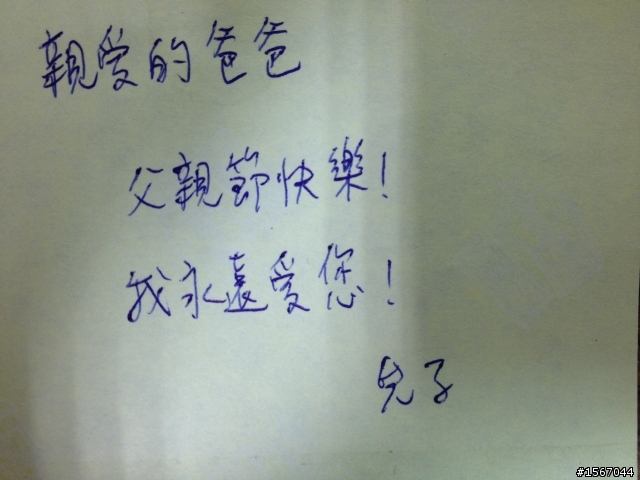 親愛的爸爸
父親節快樂!
我永遠愛您!
兒子
#1567044